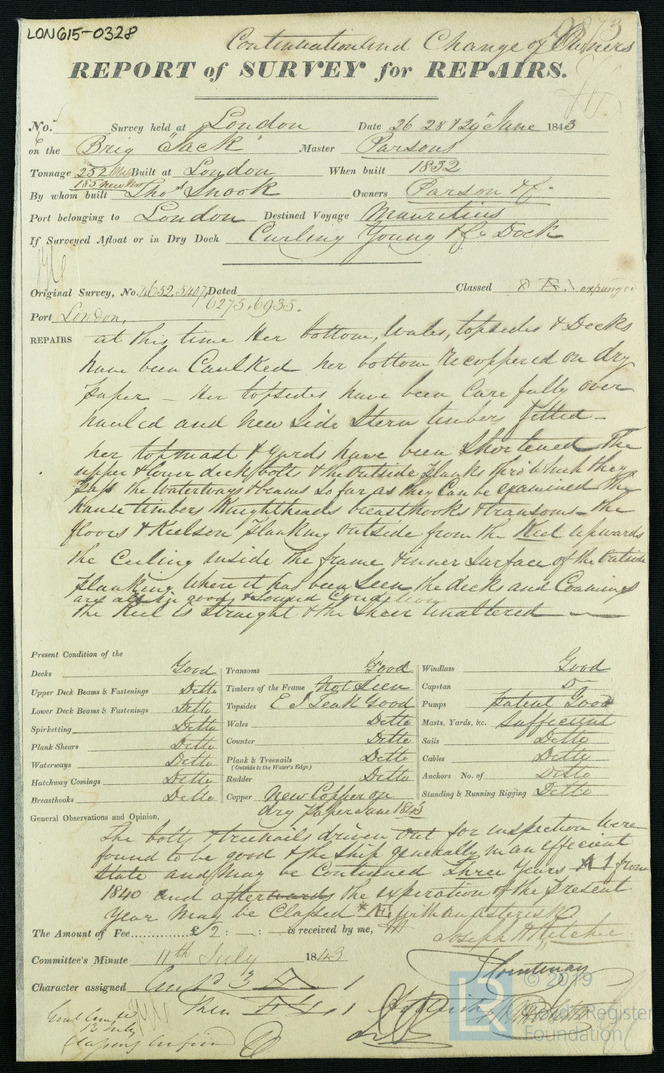 LON615-0328
Continuation and Change of Owners
REPORT of SURVEY for REPAIRS.
No. Survey held at London Date 26 28 & 29 June 1843
on the Brig "Jack" Master Parsons
Tonnage 252 Built at London When built 1832
By whom built Thos Snook Owners Parson & Co
Port belonging to London Destined Voyage Mauritius
If Surveyed Afloat or in Dry Dock Curling Young & Co Dock
Original Survey, No. 4652.5407 Dated Classed 8 expunged
6275.6935.
Port London,
REPAIRS at this time Her bottom, Wales, topsides & Decks
have been Caulked her bottom recoppered on dry
paper – Her topsides have been Carefully over
hauled and New Side Stern timber fitted –
her topmast & yards have been Shortened The
upper & lower deck bolts & the outside planks thro which they
pass the Waterways & beams so far as they Can be examined the
hause timbers Knightheads breasthooks & transoms – the
floors & Keelson planking outside from the Keel upwards
the Ceiling inside the frame & inner Surface of the Outside
planking where it has been Seen, the decks and Comings
are all in good & Sound Condition
the Keel is Straight & the Sheer unaltered —
Present Condition of the
Decks Good Transoms Good Windlass Good
Upper Deck Beams & Fastenings Ditto Timbers of the Frame Not Seen Capstan Do
Lower Deck Beams & Fastenings Ditto Topsides E I Teak Good Pumps Patent Good
Spirketting Ditto Wales Ditto Masts, Yards, &c. Sufficient
Plank Shears Ditto Counter Ditto Sails Ditto
Waterways Ditto Plank & Treenails Ditto Cables Ditto
(Outside to the Water's Edge)
Hatchway Comings Ditto Rudder Ditto Anchors No. of Ditto
Breasthooks Ditto Copper New Copper on Standing & Running Rigging Ditto
dry paper June 1843
General Observations and Opinion,
The bolts & treenails driven out for inspection were
found to be good & the ship generally in an efficient
State and May be Continued Three Years A1 from
1840 and afterwards the expiration of the present
Year May be Classed *Æ1 with an asterisk
The Amount of Fee............ £ 2 : – : is received by me,
Joseph H Ritchie
Committee's Minute 11th July 1843
Character assigned Cont 3 A 1
Then Æ 1
12 July
© 2019
Lloyd's Register
Foundation